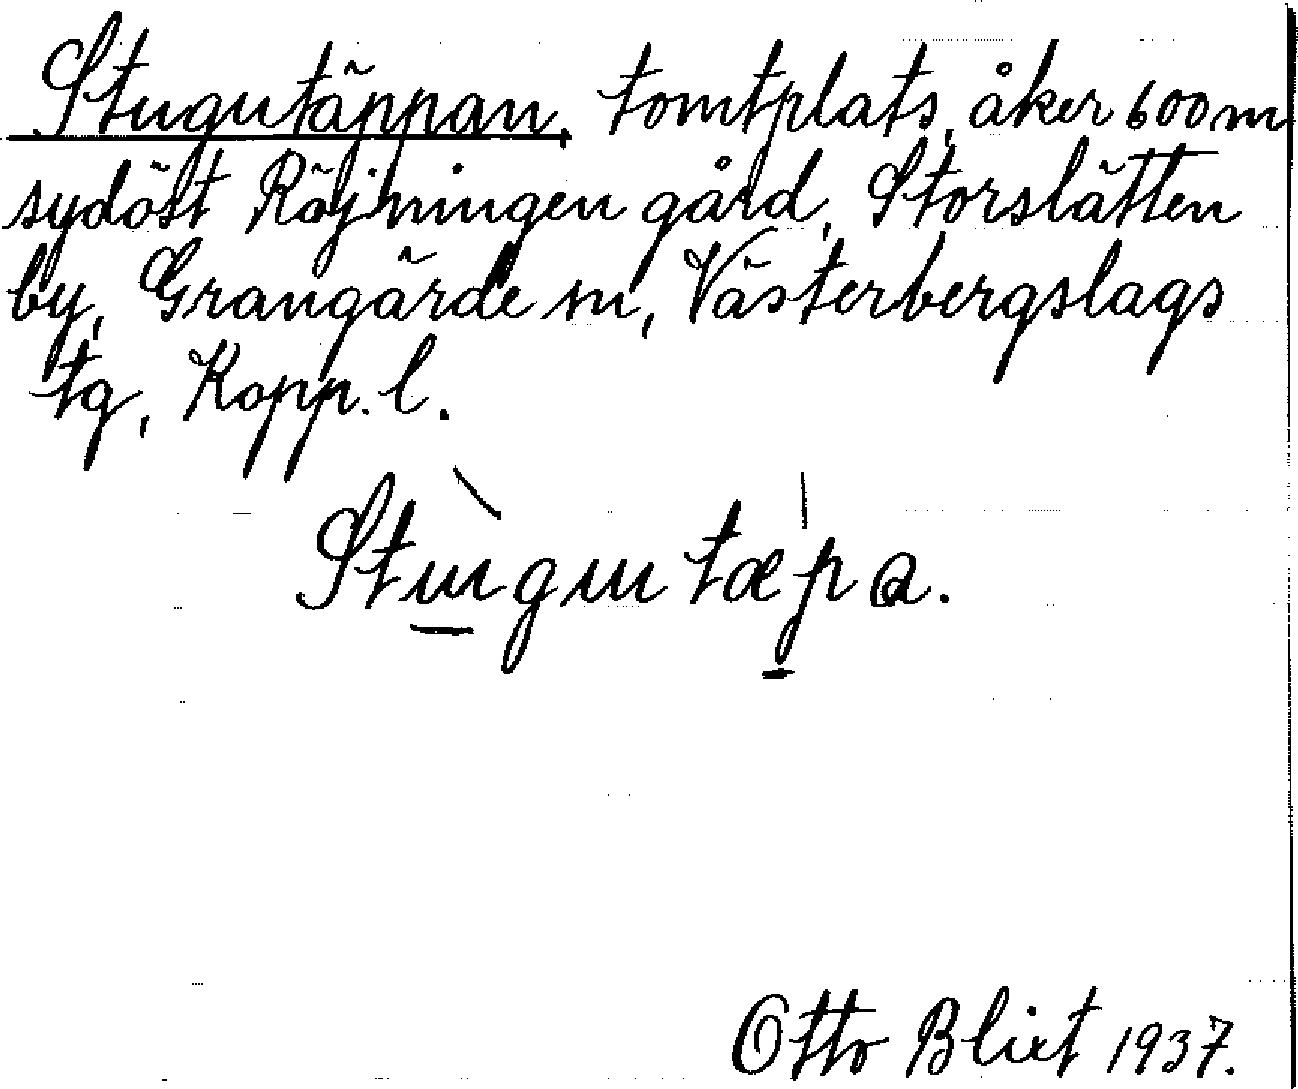 Stugutäppan, tomtplats, åker 600 m
sydöst Röjningen gård, Storslätten
by, Grangärde sn, Västerbergslags
tg, Kopp. l.
Stɯgɯtæpa.
Otto Blixt 1937.